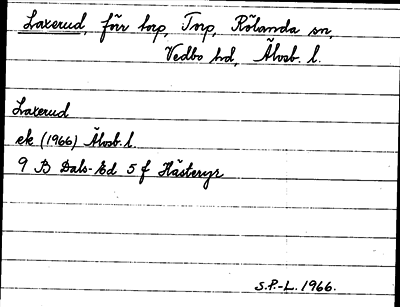 Laxerud, förr torp, Torp, Rölanda sn,
Vedbo hd, Älvsb. l.
Laxerud
ek (1966) Älvsb. l.
9 B Dals-Ed 5 f Hästeryr
S.P.-L. 1966.